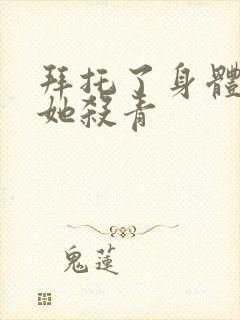 拜托了身體
她殺青
鬼蓮